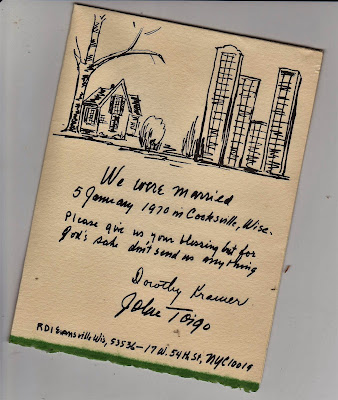 We were married
5 January 1970 in Cooksville, Wisc.
Please give us your blessing but for
God's sake don't send us anything
Dorothy Kramer
John Toigo
RD1 Evansville Wis, 53536 - 17 W. 54th St, NYC 10019